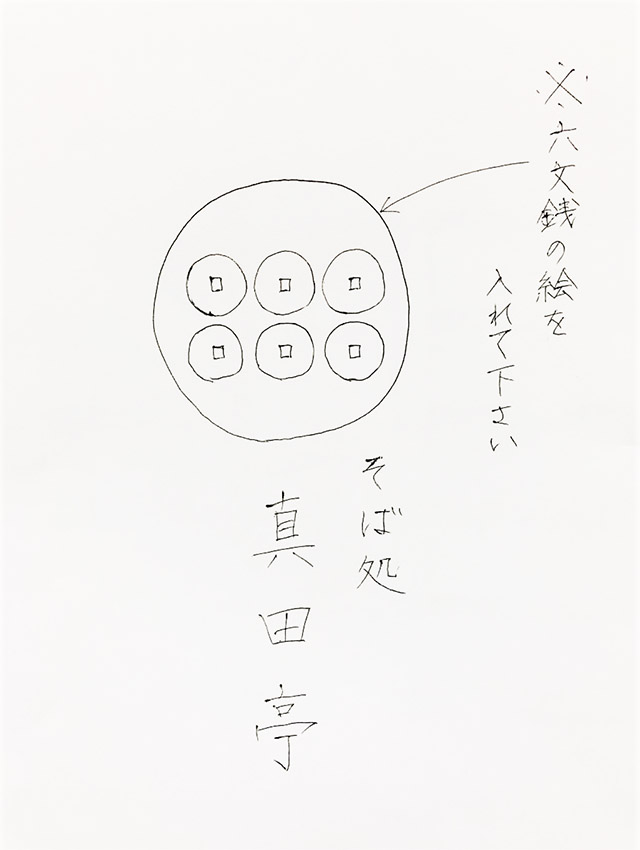 ※六文銭の絵を
入れて下さい
そば処
真田亭